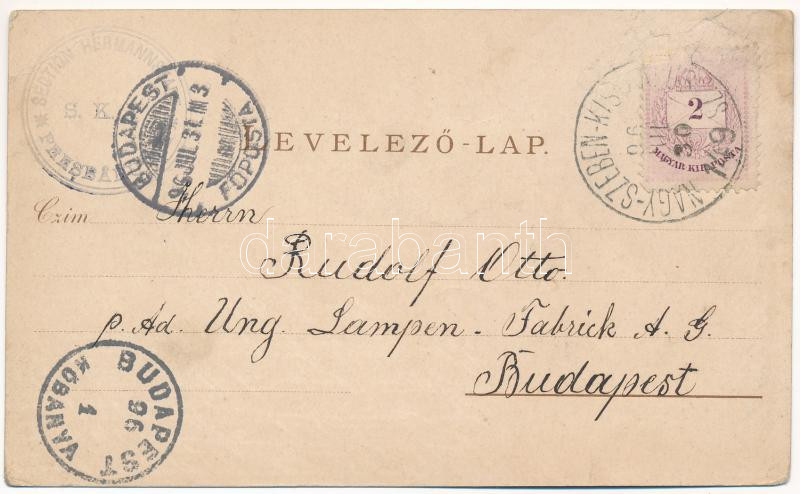 SECTION HERMANN
S. K.
BUDAPEST
96 JUL. 31. N 3
FŐPOSTA
LEVELEZŐ-LAP.
NAGY-SZEBEN-KIS
96
30
49
2
MAGYAR KIR. POSTA
Czim Herrn
Rudolf Otto.
p. Ad. Ung. Lampen-Fabrick A. G.
Budapest
www.darabanth.com
darabanth
BUDAPEST
96
1
KŐBÁNYA